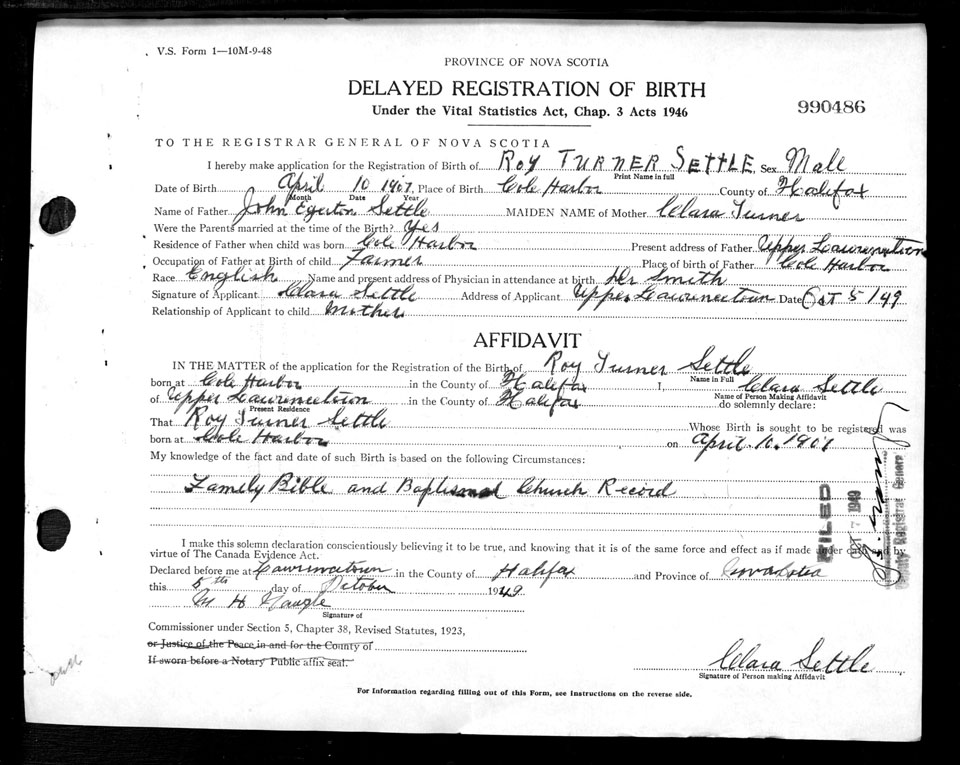 V.S. Form 1—10M-9-48
PROVINCE OF NOVA SCOTIA
DELAYED REGISTRATION OF BIRTH
Under the Vital Statistics Act, Chap. 3 Acts 1946
990486
TO THE REGISTRAR GENERAL OF NOVA SCOTIA
I hereby make application for the Registration of Birth of ROY TURNER SETTLE Sex Male
Print Name in full
Date of Birth April 10 1907. Place of Birth Cole Harbor County of Halifax
Month Date Year
Name of Father John Egerton Settle MAIDEN NAME of Mother Clara Turner
Were the Parents married at the time of the Birth? Yes
Residence of Father when child was born Cole Harbor Present address of Father Upper Lawrencetown
Occupation of Father at Birth of child Farmer Place of birth of Father Cole Harbor
Race English Name and present address of Physician in attendance at birth Dr Smith
Signature of Applicant Clara Settle Address of Applicant Upper Lawrencetown Date Oct 5/49
Relationship of Applicant to child Mother
AFFIDAVIT
IN THE MATTER of the application for the Registration of the Birth of Roy Turner Settle
Name in Full
born at Cole Harbor in the County of Halifax I, Clara Settle
Name of Person Making Affidavit
of Upper Lawrencetown in the County of Halifax do solemnly declare:
Present Residence
That Roy Turner Settle Whose Birth is sought to be registered was
born at Cole Harbor on April. 10. 1907
My knowledge of the fact and date of such Birth is based on the following Circumstances:
Family Bible and Baptismal Church Record
I make this solemn declaration conscientiously believing it to be true, and knowing that it is of the same force and effect as if made under oath and by
virtue of The Canada Evidence Act.
Declared before me at Lawrencetown in the County of Halifax and Province of Nova Scotia
this 5th day of October 1949
M H
Signature of
Commissioner under Section 5, Chapter 38, Revised Statutes, 1923,
or Justice of the Peace in and for the County of
If sworn before a Notary Public affix seal.
Clara Settle
Signature of Person making Affidavit
For Information regarding filling out of this Form, see instructions on the reverse side.
FILED
OCT 7 1949
Deputy Registrar General